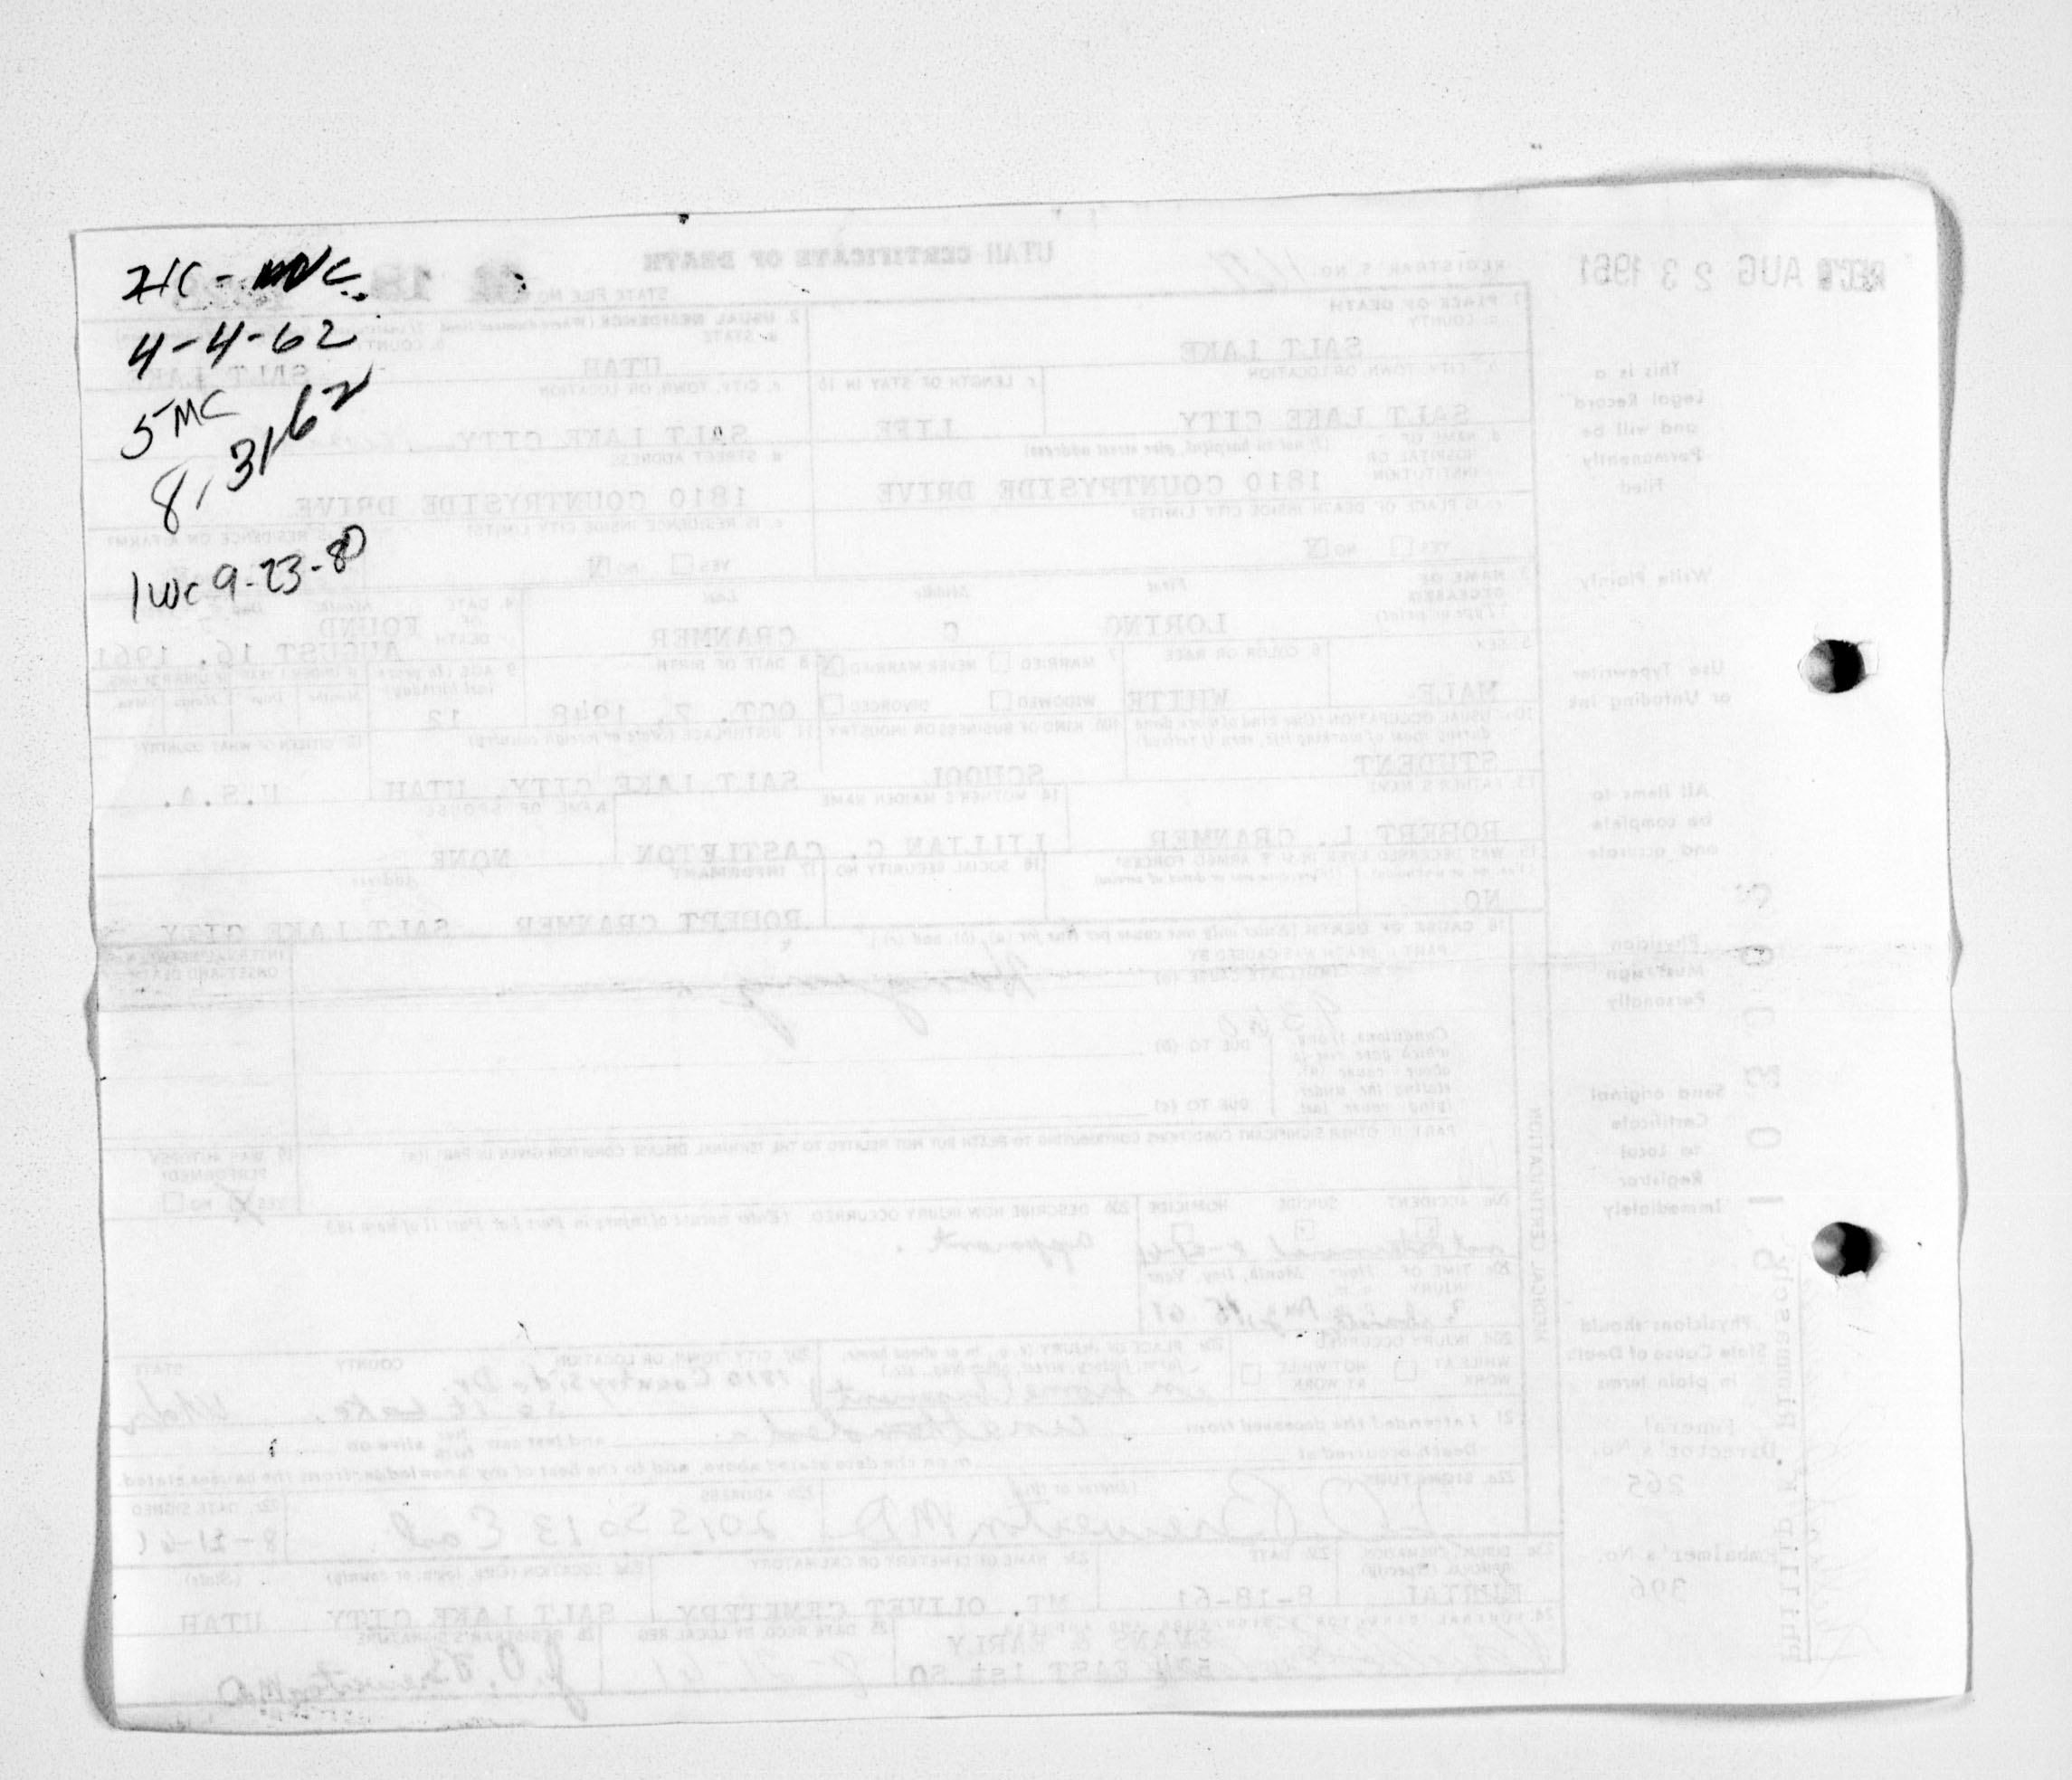 4-4-62
5MC
8,3162
1wc 9-23-80
REC'D AUG 23 1961
UTAH CERTIFICATE OF DEATH
REGISTRAR'S NO.
STATE FILE NO. 61 18
1. PLACE OF DEATH
a. COUNTY
SALT LAKE
2. USUAL RESIDENCE (Where deceased lived.
a. STATE
UTAH
b. COUNTY
SALT LAKE
b. CITY, TOWN, OR LOCATION
SALT LAKE CITY
c. LENGTH OF STAY IN 1b
LIFE
c. CITY, TOWN, OR LOCATION
SALT LAKE CITY
d. NAME OF (If not in hospital, give street address)
HOSPITAL OR
INSTITUTION
1810 COUNTRYSIDE DRIVE
d. STREET ADDRESS
1810 COUNTRYSIDE DRIVE
e. IS PLACE OF DEATH INSIDE CITY LIMITS?
YES NO
e. IS RESIDENCE INSIDE CITY LIMITS?
YES NO
f. IS RESIDENCE ON A FARM?
3. NAME OF DECEASED
(Type or print)
First Middle Last
LORING C CRANMER
4. DATE OF DEATH
Month Day
FOUND
AUGUST 16, 1961
5. SEX
MALE
6. COLOR OR RACE
WHITE
7. MARRIED NEVER MARRIED
WIDOWED DIVORCED
8. DATE OF BIRTH
OCT. 7, 1948
9. AGE (In years last birthday)
12
IF UNDER 1 YEAR IF UNDER 24 HRS.
Months Days Hours Min.
10a. USUAL OCCUPATION (Give kind of work done during most of working life, even if retired)
STUDENT
10b. KIND OF BUSINESS OR INDUSTRY
SCHOOL
11. BIRTHPLACE (State or foreign country)
SALT LAKE CITY, UTAH
12. CITIZEN OF WHAT COUNTRY?
U.S.A.
13. FATHER'S NAME
ROBERT L. CRANMER
14. MOTHER'S MAIDEN NAME
LILLIAN C. CASTLETON
NAME OF SPOUSE
NONE
15. WAS DECEASED EVER IN U.S. ARMED FORCES?
(Yes, no, or unknown) (If yes, give war or dates of service)
NO
16. SOCIAL SECURITY NO.
17. INFORMANT Address
ROBERT CRANMER SALT LAKE CITY
18. CAUSE OF DEATH (Enter only one cause per line for (a), (b), and (c).)
PART I. DEATH WAS CAUSED BY
IMMEDIATE CAUSE (a)
INTERVAL BETWEEN
ONSET AND DEATH
Conditions, if any,
which gave rise to
above cause (a),
stating the under-
lying cause last.
DUE TO (b)
DUE TO (c)
PART II. OTHER SIGNIFICANT CONDITIONS CONTRIBUTING TO DEATH BUT NOT RELATED TO THE TERMINAL DISEASE CONDITION GIVEN IN PART I(a)
19. WAS AUTOPSY
PERFORMED?
YES NO
20a. ACCIDENT SUICIDE HOMICIDE
20b. DESCRIBE HOW INJURY OCCURRED. (Enter nature of injury in Part I or Part II of item 18.)
20c. TIME OF INJURY Hour Month, Day, Year
Aug 15 61
20d. INJURY OCCURRED
WHILE AT WORK NOT WHILE AT WORK
20e. PLACE OF INJURY (e.g., in or about home, farm, factory, street, office bldg., etc.)
in home
20f. CITY, TOWN, OR LOCATION COUNTY STATE
1810 Countryside Dr.
Utah
21. I attended the deceased from
and last saw alive on
Death occurred at m on the date stated above, and to the best of my knowledge, from the causes stated.
22a. SIGNATURE (Degree or title)
22b. ADDRESS
2015 So 13 East
22c. DATE SIGNED
8-21-61
23a. BURIAL, CREMATION, REMOVAL (Specify)
BURIAL
23b. DATE
8-18-61
23c. NAME OF CEMETERY OR CREMATORY
MT. OLIVET CEMETERY
23d. LOCATION (City, town, or county) (State)
SALT LAKE CITY UTAH
24. FUNERAL DIRECTOR'S SIGNATURE AND ADDRESS
EVANS & EARLY
574 EAST 1st SO
25. DATE RECD. BY LOCAL REG.
8-21-61
26. REGISTRAR'S SIGNATURE
MEDICAL CERTIFICATION
This is a
Legal Record
and will be
Permanently
Filed
Write Plainly
Use Typewriter
or Unfading Ink
All items to
be complete
and accurate
Physician
Must sign
Personally
Send original
Certificate
to Local
Registrar
Immediately
Physicians should
State Cause of Death
in plain terms
Funeral
Director's No.
265
Embalmer's No.
396